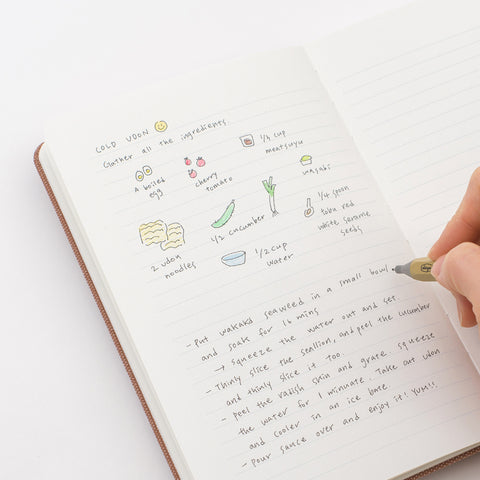 COLD UDON
Gather all the ingredients.
A boiled
egg
cherry
tomato
1/4 cup
meatsuyu
wasabi
2 udon
noodles
1/2 cucumber
1/2 cup
water
1/4 spoon
toba red
white sesame
seeds
- Put wakaka seaweed in a small bowl
and soak for 16 mins
→ squeeze the water out and set.
- Thinly slice the scallion, and peel the cucumber
and thinly slice it too.
- Peel the radish skin and grate. squeeze
the water for 1 minuate. Take out udon
and cooler in an ice bowe.
- pour sauce over and enjoy it! YUM!!